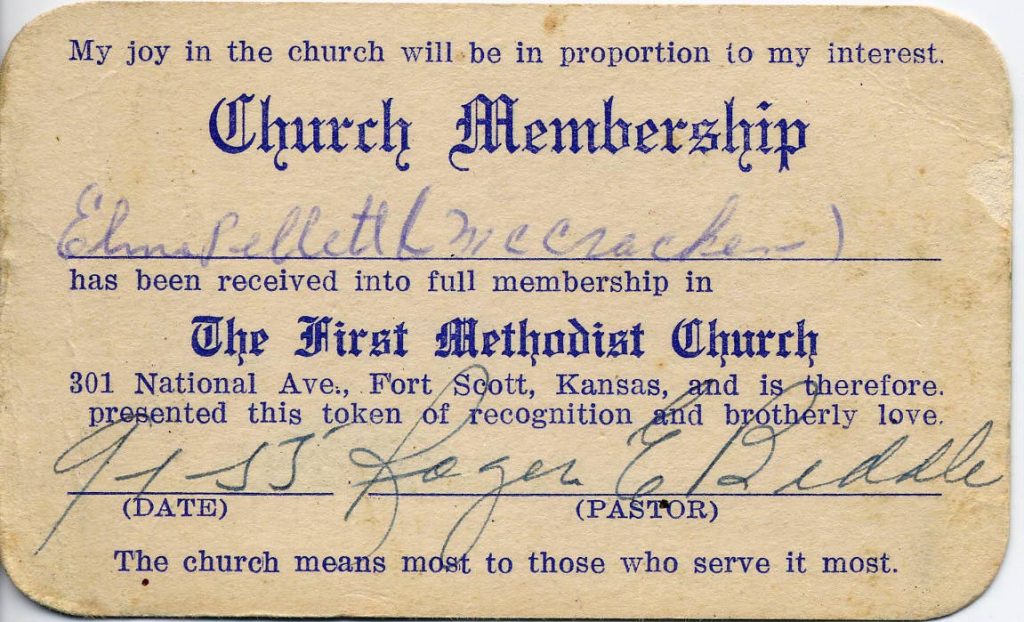 My joy in the church will be in proportion to my interest.
Church Membership
Elma Pellett (McCracken)
has been received into full membership in
The First Methodist Church
301 National Ave., Fort Scott, Kansas, and is therefore.
presented this token of recognition and brotherly love.
9-1-55 Roger E Biddle
(DATE) (PASTOR)
The church means most to those who serve it most.